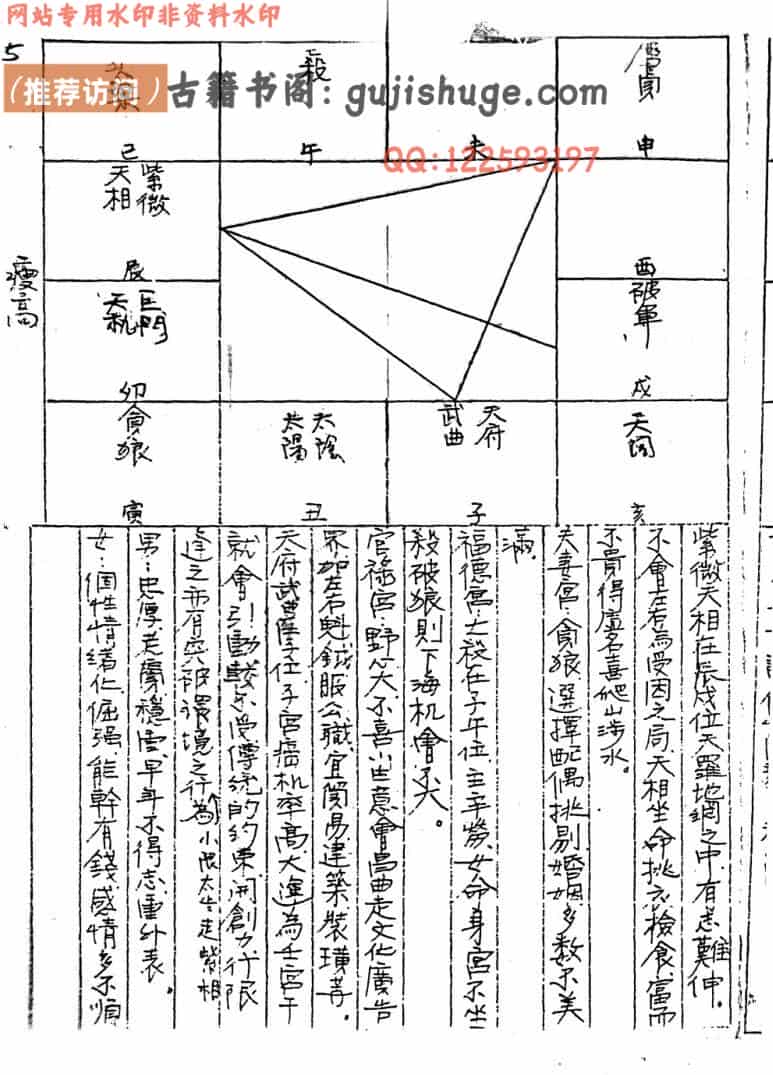 网站专用水印非资料水印
5
(推荐访问)古籍书阁:gujishuge.com
QQ:122593197
巳
殺
午
未
廉貞
申
紫微
天相
辰
酉
瘦高
巨門
天机
卯
破軍
戌
貪狼
寅
太陰
太陽
丑
天府
武曲
子
天同
亥
紫微天相在辰戌位天羅地網之中,有志難伸。
不會左右為受困之局,天相坐命挑衣檢食,富而
不貴得虛名喜爬山涉水。
夫妻宮:貪狼選擇配偶挑剔婚姻多数不美
滿。
福德宮:七殺在子午位,主辛勞,女命身宮不坐
殺破狼則下海机會不大。
官祿宮:野心大不喜小生意會昌曲走文化廣告
界加左右魁鉞服公職,宜貿易建築裝璜等。
天府武曲坐子位子宮癌机率高大運為壬宮干
就會引動較不受傳統的約束,開創力行限
逢之亦有突破環境之行為 小限太生走皆相
男:忠厚老實穩重早年不得志重外表。
女:個性情緒化倔强能幹有錢感情多不順